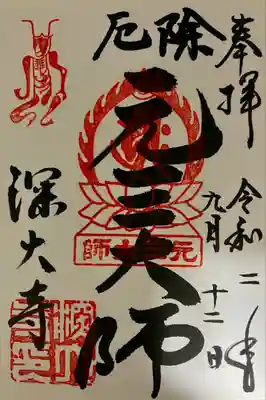 奉拝
令和二年
九月十二日
厄除
元三大師
元三大師
深大寺